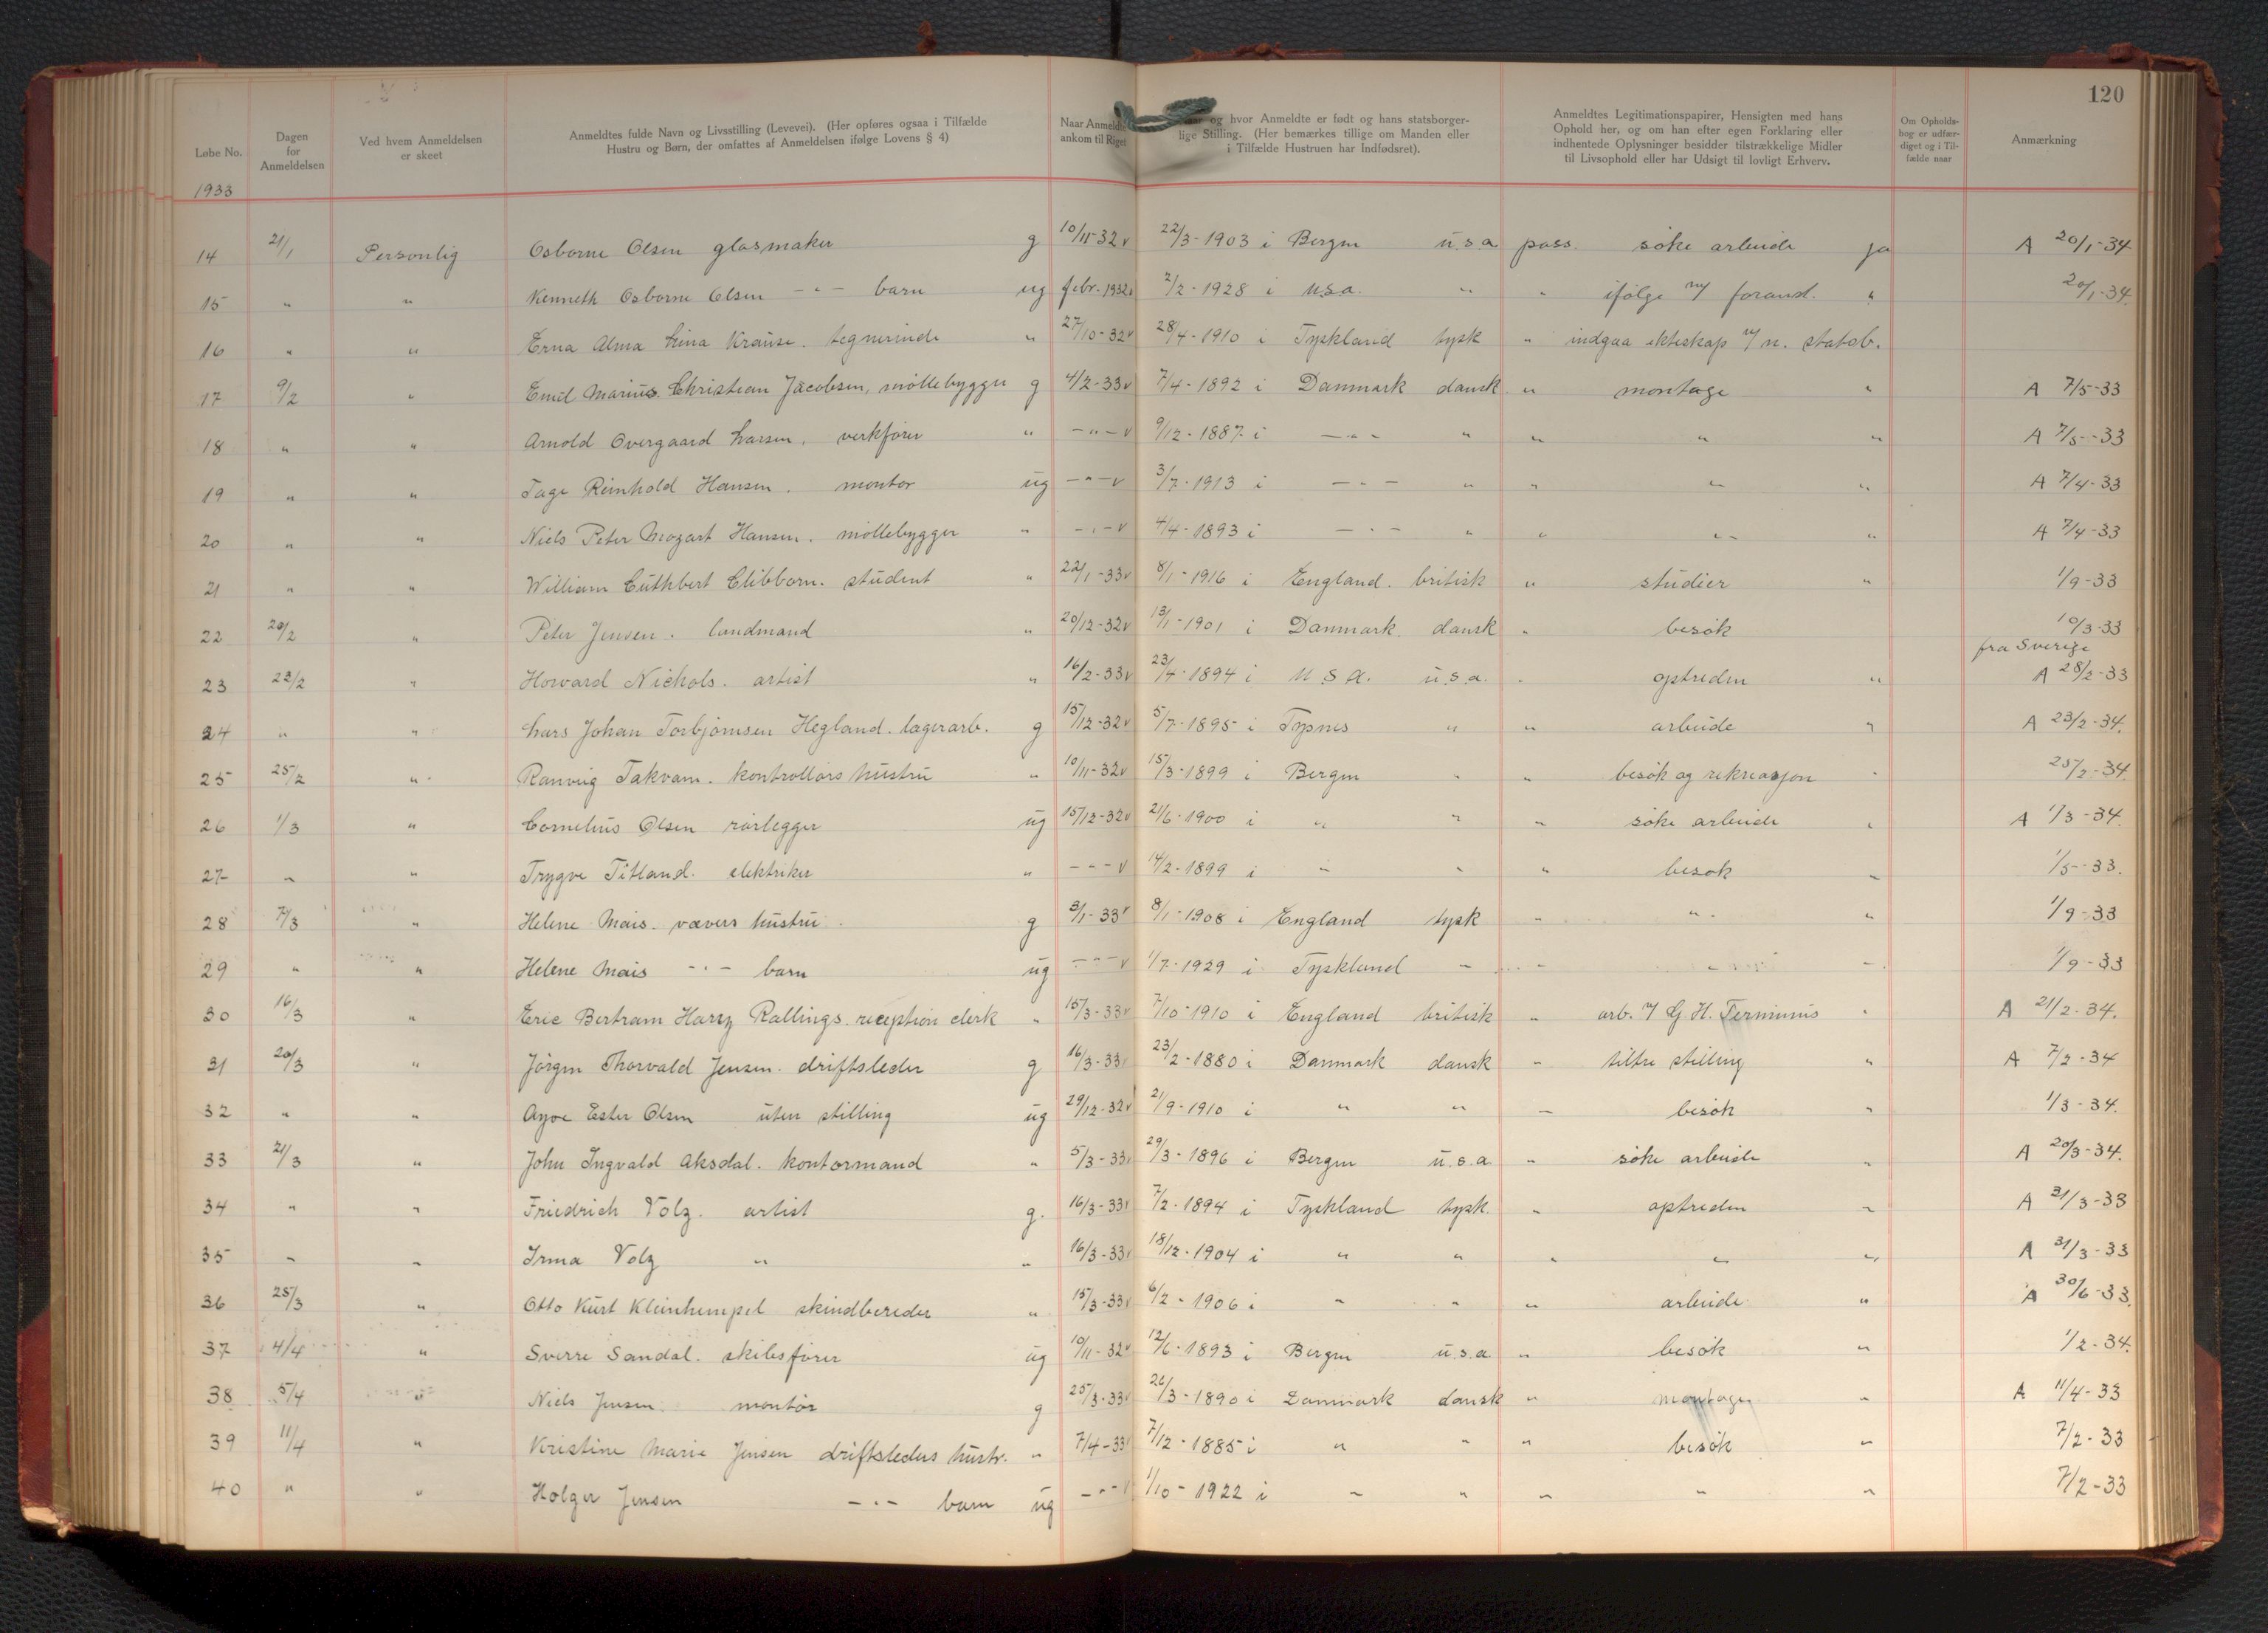 120
Løbe No.
Dagen for Anmeldelsen
Ved hvem Anmeldelsen er skeet
Anmeldtes fulde Navn og Livsstilling (Levevei). (Her opføres ogsaa i Tilfælde Hustru og Børn, der omfattes af Anmeldelsen ifølge Lovens § 4)
Naar Anmeldte ankom til Riget
og hvor Anmeldte er født og hans statsborgerlige Stilling. (Her bemærkes tillige om Manden eller i Tilfælde Hustruen har Indfødsret).
Anmeldtes Legitimationspapirer, Hensigten med hans Ophold her, og om han efter egen Forklaring eller indhentede Oplysninger besidder tilstrækkelige Midler til Livsophold eller har Udsigt til lovligt Erhverv.
Om Opholdsbog er udfærdiget og i Tilfælde naar
Anmærkning
1933
14 21/1 Personlig Osborne Olsen glasmaker g 10/11-32 v 22/3-1903 i Bergen u.s.a pass. søke arbeide ja A 20/1-34
15 " " Kenneth Osborne Olsen -"- barn ug febr. 1932 v 2/2-1928 i u.s.a. " " ifølge m/ forand. " 20/1-34.
16 " " Erna Alma Lina Krause. tegnerinde " 27/10-32 v 28/4-1910 i Tyskland tysk " indgaa ekteskap m/ n. statsb.
17 9/2 " Emil Marius Christian Jacobsen, møllebygger g 4/2-33 v 7/4-1892 i Danmark dansk " montage " A 7/5-33
18 " " Arnold Overgaard Larsen. verkfører " -"- v 9/12-1887 i -"- " " " " A 7/5-33
19 " " Tage Reinhold Hansen. montør ug -"- v 3/7-1913 i -"- " " " " A 7/4-33
20 " " Niels Peter Mozart Hansen. møllebygger " -"- v 4/4-1893 i -"- " " " " A 7/4-33
21 " " William Cuthbert Clibborn. student " 22/1-33 v 8/1-1916 i England. britisk " studier " 1/9-33
22 20/2 " Peter Jensen. landmand " 20/12-32 v 13/1-1901 i Danmark. dansk " besøk 10/3-33
fra Sverige
23 22/2 " Howard Nichols. artist " 16/2-33 v 23/4-1894 i U.S.A. u.s.a. " optreden " A 28/2-33
24 " " Lars Johan Torbjørnsen Hegland. lagerarb. g 15/12-32 v 5/7-1895 i Tysnes " " arbeide " A 23/2-34.
25 25/2 " Ranveig Takvam. kontrollørs hustru " 10/11-32 v 15/3-1899 i Bergen " " besøk og rekreasjon " 25/2-34.
26 1/3 " Cornelius Olsen rørlegger ug 15/12-32 v 21/6-1900 i " " " søke arbeide " A 1/3-34.
27 " " Trygve Titland. elektriker " -"- v 14/2-1899 i " " " besøk " 1/5-33.
28 7/3 " Helene Mais. vævers hustru. g 3/1-33 v 8/1-1908 i England tysk " " " 1/9-33
29 " " Helene Mais -"- barn ug -"- v 1/7-1929 i Tyskland " " " " 1/9-33
30 16/3 " Eric Bertram Harry Rallings. reception clerk " 15/3-33 v 7/10-1910 i England britisk " arb. v/ G. H. Terminus " A 21/2-34.
31 20/3 " Jørgen Thorvald Jensen. driftsleder g 16/3-33 v 23/2-1880 i Danmark dansk " tiltre stilling " A 7/2-34
32 " " Ester Olsen uten stilling ug 29/12-32 v 2/9-1910 i " " " besøk " 1/3-34.
33 21/3 " John Ingvald Aksdal. kontormand " 5/3-33 v 29/3-1896 i Bergen u.s.a " søke arbeide " A 20/3-34.
34 " " Friedrich Volz. artist g. 16/3-33 v 7/2-1894 i Tyskland tysk. " optreden " A 31/3-33
35 " " Irma Volz " " 16/3-33 v 18/12-1904 i " " " " " A 31/3-33
36 25/3 " Otto Kurt Kleinhempel skindbereder " 15/3-33 v 6/2-1906 i " " " arbeide " A 30/6-33.
37 4/4 " Sverre Sandal. skibsfører ug 10/11-32 v 12/6-1893 i Bergen u.s.a " besøk " 1/2-34.
38 5/4 " Niels Jensen. montør g 25/3-33 v 26/3-1890 i Danmark dansk " montage " A 11/4-33
39 11/4 " Kristine Marie Jensen driftsleders hustr. " 7/4-33 v 7/12-1885 i " " " besøk " 7/2-33
40 " " Holger Jensen -"- barn ug -"- v 1/10-1922 i " " " " " 7/2-33